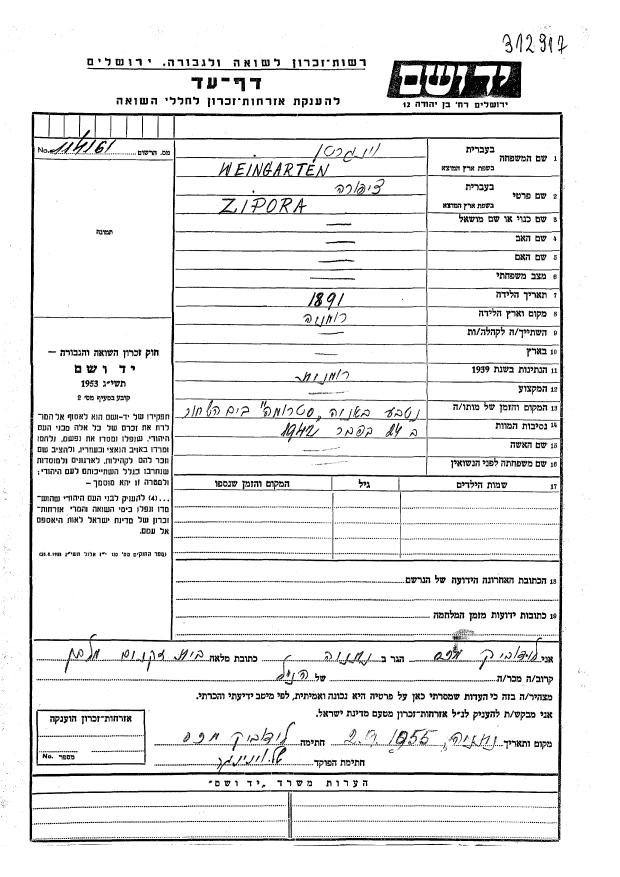 312917
רשות-זכרון לשואה ולגבורה, ירושלים
דף-עד
להענקת אזרחות-זכרון לחללי השואה
יד ושם
ירושלים רח' בן יהודה 12
מס. הרשום No. 114161
תמונה
חוק זכרון השואה והגבורה –
יד ושם
תשי"ג 1953
קובע בסעיף מס' 2
תפקידו של יד-ושם הוא לאסוף אל המו-
לדת את זכרם של כל אלה מבני העם
היהודי, שנפלו ומסרו את נפשם, נלחמו
ומרדו באויב הנאצי ובעוזריו, ולהציב שם
וזכר להם לקהילות, לארגונים ולמוסדות
שנחרבו בגלל השתייכותם לעם היהודי;
ולמטרה זו יהא מוסמך –
...(4) להענקת לבני העם היהודי שהוש-
מדו ונפלו בימי השואה והמרי אזרחות-
זכרון של מדינת ישראל לאות היאספם
אל עמם.
1 שם המשפחה בעברית וינגרטן
בשפת ארץ המוצא WEINGARTEN
2 שם פרטי בעברית ציפורה
בשפת ארץ המוצא ZIPORA
3 שם כנוי או שם מושאל —
4 שם האב —
5 שם האם —
6 מצב משפחתי —
7 תאריך הלידה 1891
8 מקום וארץ הלידה רומניה
9 השתייך/ה לקהלה/ות —
10 בארץ —
11 הנתינות בשנת 1939 רומנית
12 המקצוע —
13 המקום והזמן של מותו/ה נטבע באניה "סטרומה" בים השחור
14 נסיבות המוות ב 24 בפבר 1942
15 שם האשה —
16 שם משפחתה לפני הנשואין —
17 שמות הילדים גיל המקום והזמן שנספו
18 הכתובת האחרונה הידועה של הנרשם
19 כתובות ידועות מזמן המלחמה
אני לודאביק הגר ב נתניה כתובת מלאה בית
קרוב/ה מכר/ה של הנ"ל
מצהיר/ה בזה כי העדות שמסרתי כאן על פרטיה היא נכונה ואמיתית, לפי מיטב ידיעתי והכרתי.
אני מבקש/ת להעניק לנ"ל אזרחות-זכרון מטעם מדינת ישראל.
מקום ותאריך נתניה, 1955 חתימה לודאביק
חתימת הפוקד
אזרחות-זכרון הוענקה
מספר No.
הערות משרד "יד ושם"